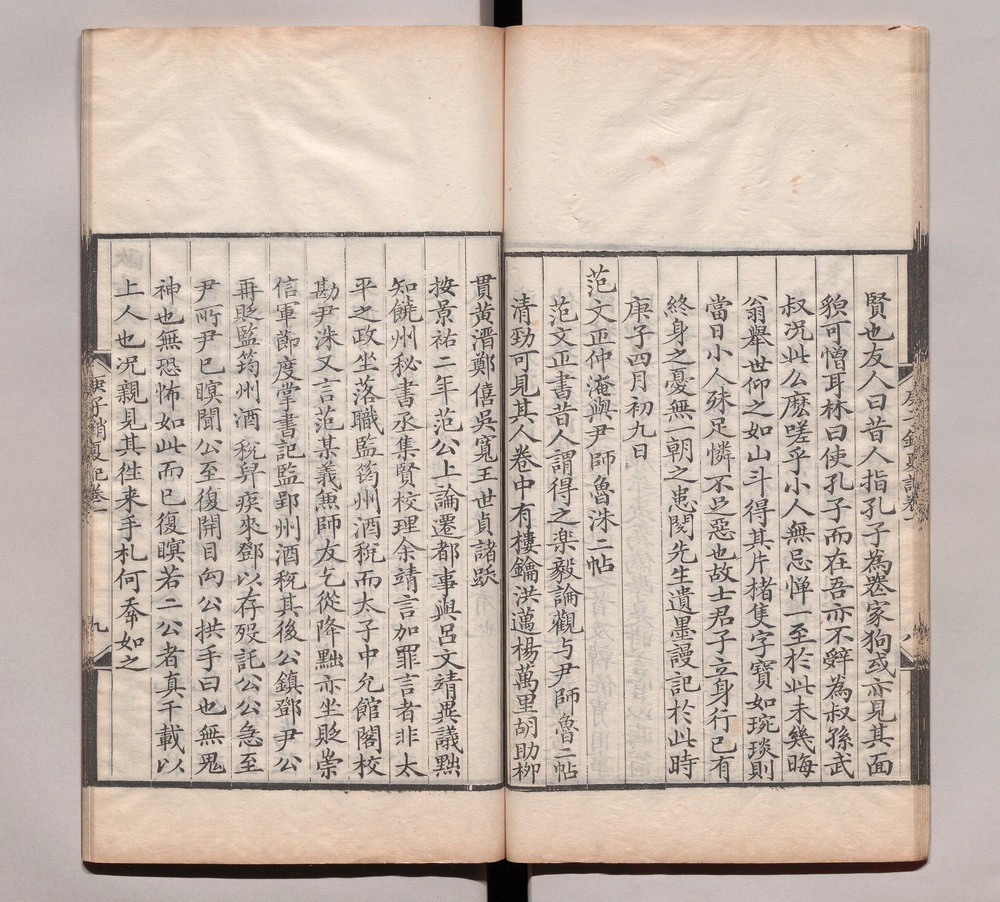 賢也友人曰昔人指孔子為喪家狗或亦見其面
貌可憎耳林曰使孔子而在吾亦不辤為叔孫武
叔况此公麽嗟乎小人無忌憚一至於此未幾晦
翁舉世仰之如山斗得其片楮隻字寶如琬琰則
當日小人殊足憐不足惡也故士君子立身行己有
終身之憂無一朝之患閱先生遺墨謾記於此時
庚子四月初九日
范文正仲淹與尹師魯洙二帖
范文正書昔人謂得之楽毅論觀与尹師魯二帖
清勁可見其人卷中有樓鑰洪邁楊萬里胡助栁
庚子銷夏記卷一
八
貫黄溍鄭僖吳寬王世貞諸跋
按景祐二年范公上論遷都事與呂文靖異議黜
知饒州秘書丞集賢校理余靖言加罪言者非太
平之政坐落職監筠州酒稅而太子中允館閣校
勘尹洙又言范某義無師友乞從降黜亦坐貶崇
信軍節度掌書記監郢州酒稅其後公鎮鄧尹公
再貶監筠州酒稅舁疾來鄧以存殁託公公急至
尹所尹已瞑聞公至復開目向公拱手曰也無鬼
神也無恐怖如此而已復瞑若二公者真千載以
上人也况親見其徃来手札何㤓如之
庚子銷夏記卷一
九